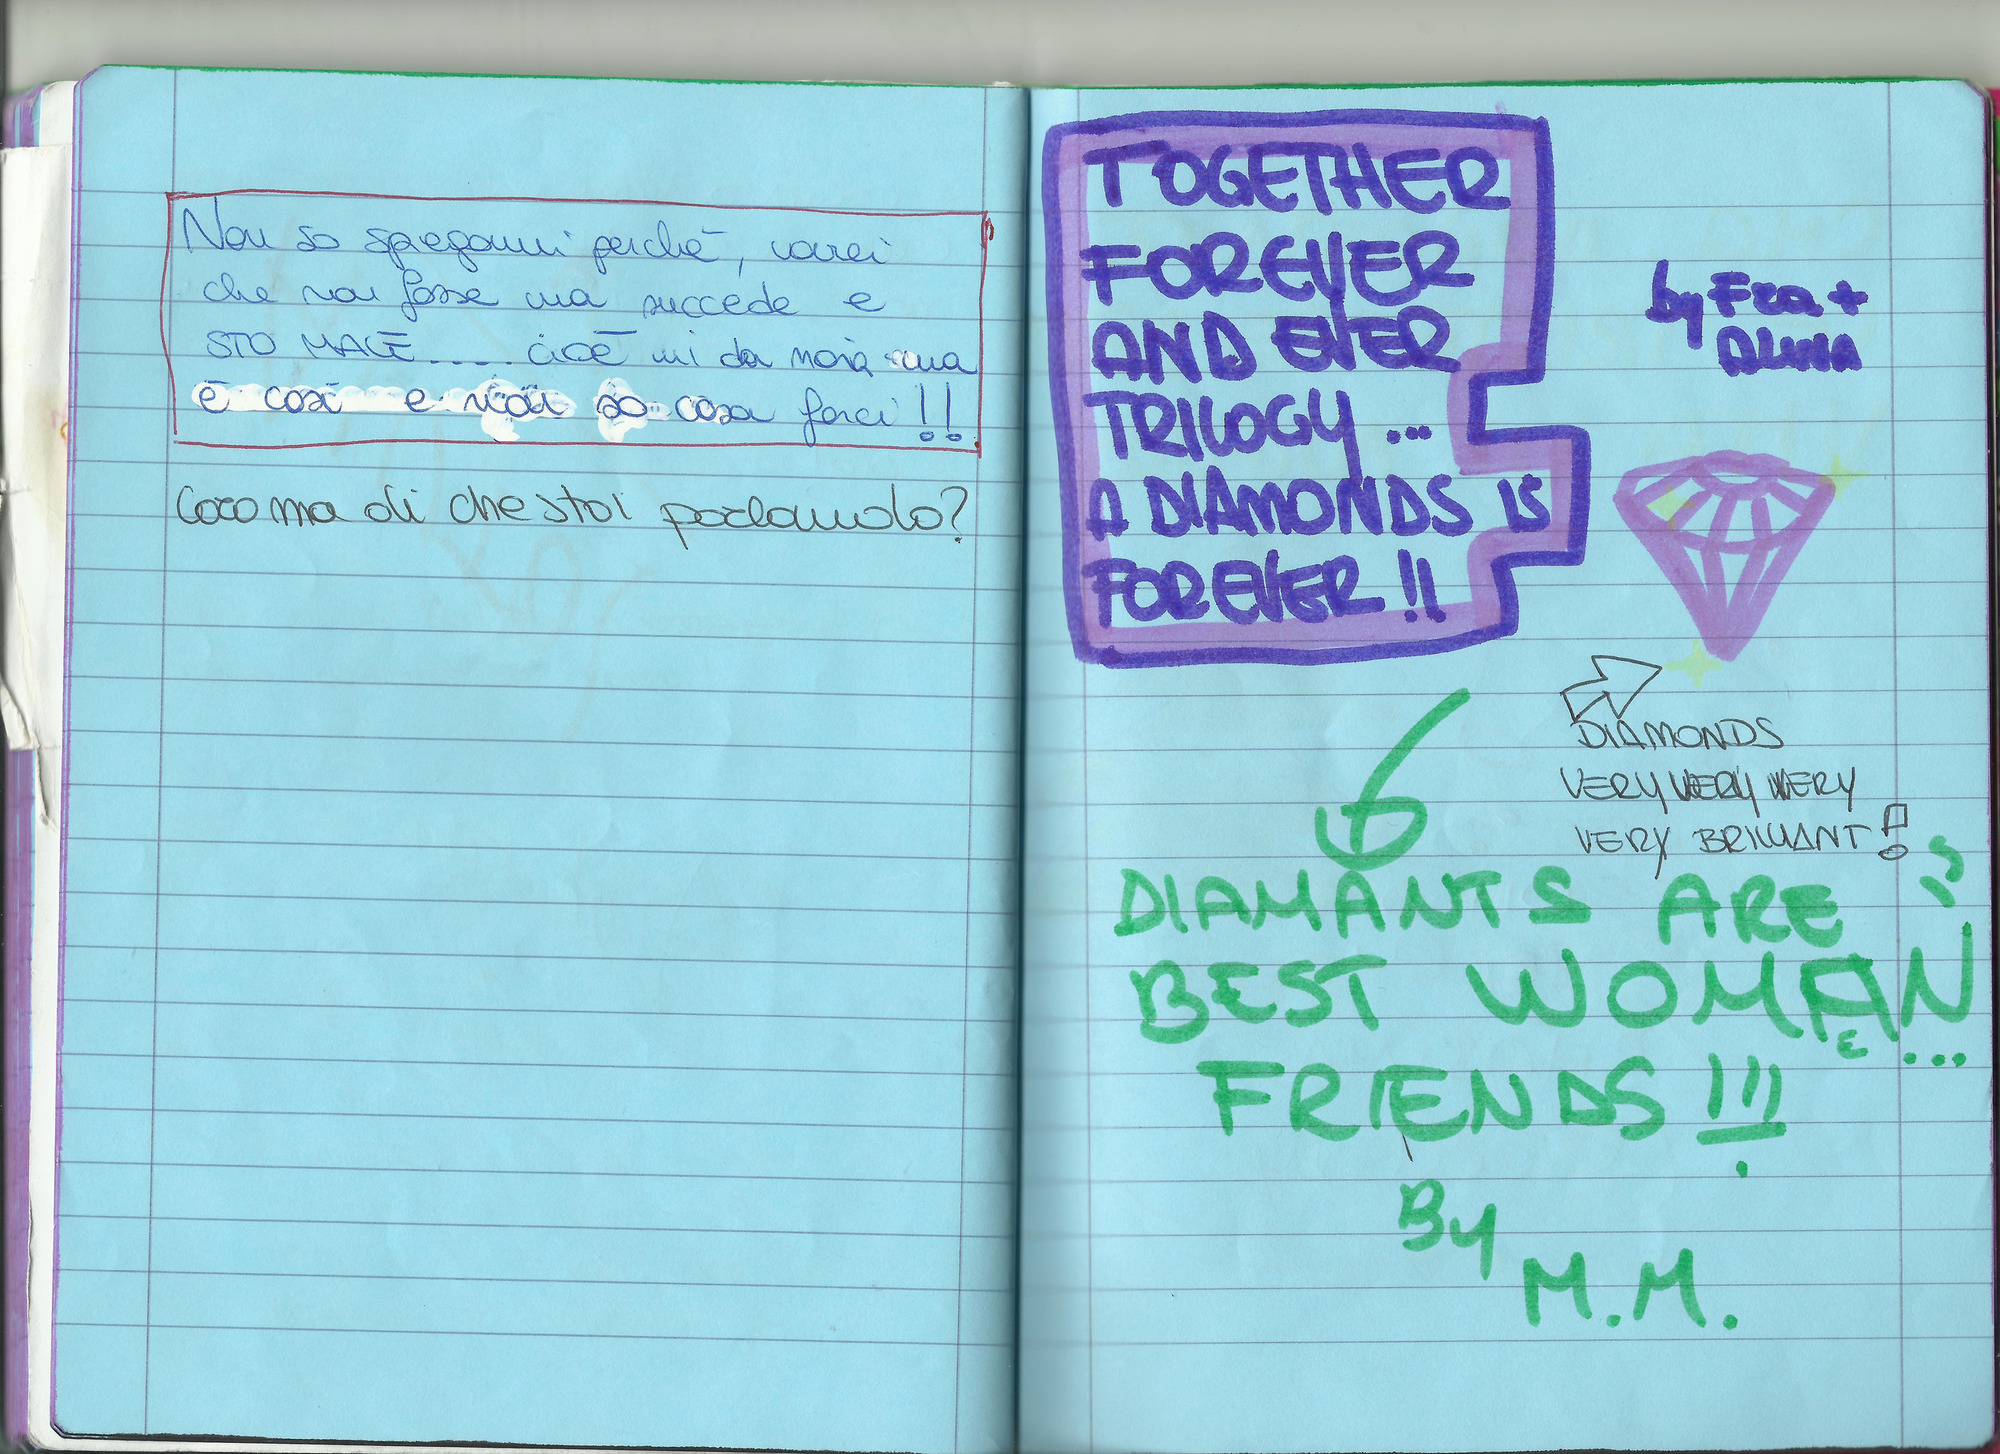 Non so spiegarmi perché, vorrei
che non fosse ma succede e
STO MALE..... cioè mi da noia ma
è così e non so cosa farci!!
Coco ma di che stai parlando?
TOGETHER
FOREVER
AND EVER
TRILOGY ...
A DIAMONDS IS
FOREVER!!
by Fra +
DIAMONDS
VERY VERY VERY
VERY BRILLIANT!
DIAMANTS ARE
BEST WOMAN
E ...
FRIENDS!!!
By
M.M.